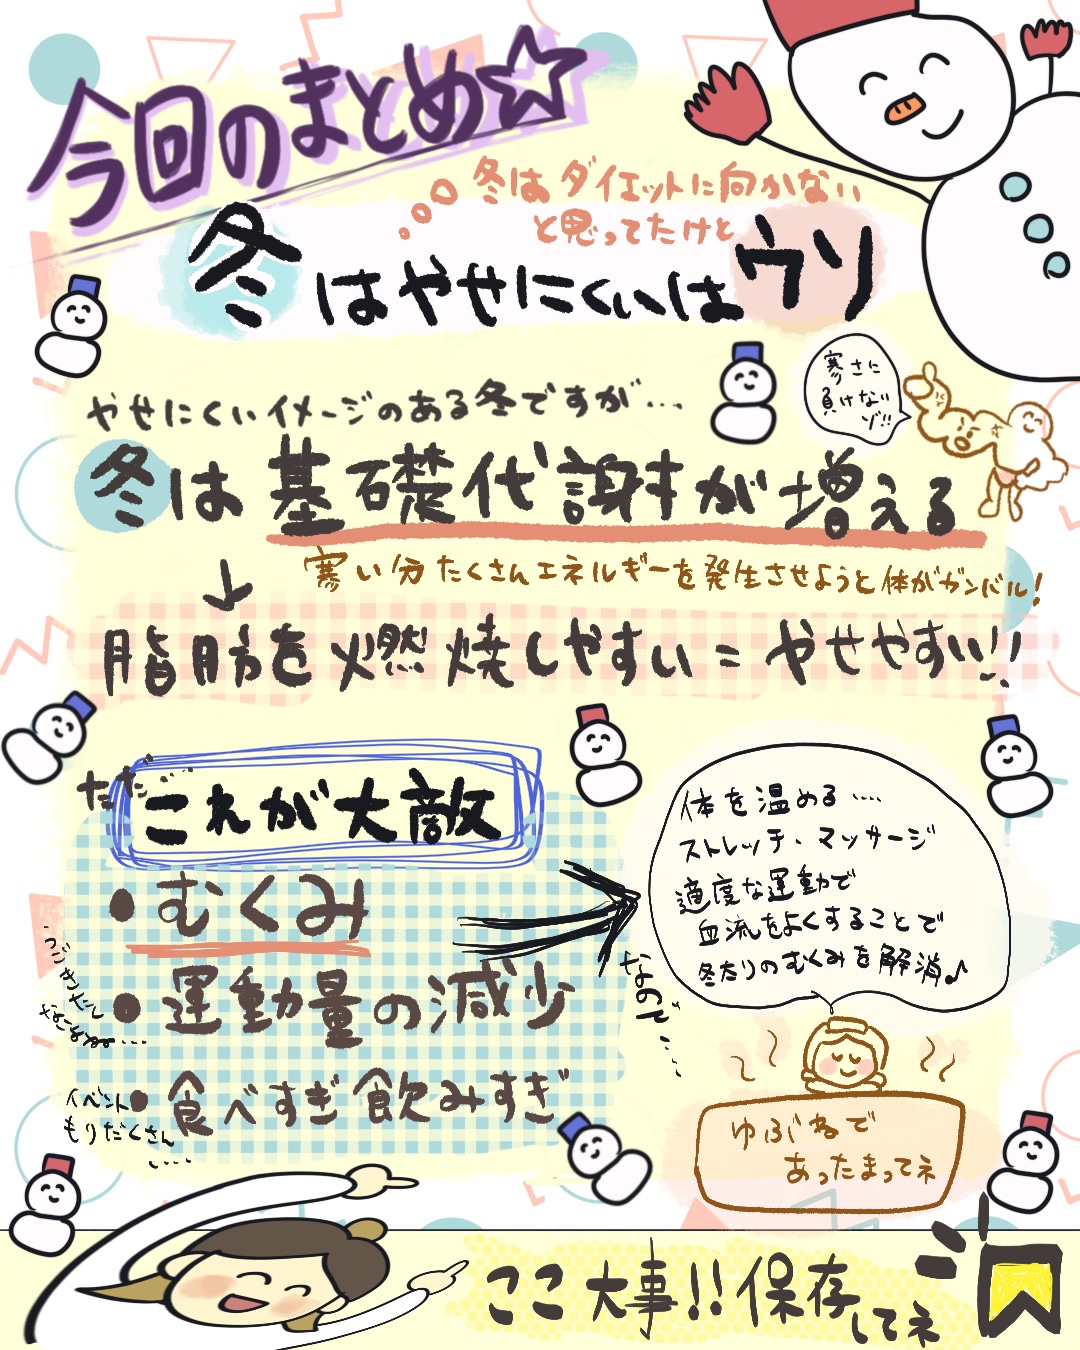 今回のまとめ☆
冬はダイエットに向かない
と思ってたけど
冬はやせにくいはウソ
やせにくいイメージのある冬ですが…
寒さに
負けない
ゾ!!
冬は基礎代謝が増える
寒い分たくさんエネルギーを発生させようと体がガンバル!
↓
脂肪を燃焼しやすい=やせやすい!!
ただ…
これが大敵
・むくみ
・運動量の減少
イベント
もりだくさん
…
・食べすぎ飲みすぎ
なので…
体を温める…
ストレッチ・マッサージ
適度な運動で
血流をよくすることで
冬太りのむくみを解消♪
ゆぶねで
あったまってネ
ここ大事!!保存してネ